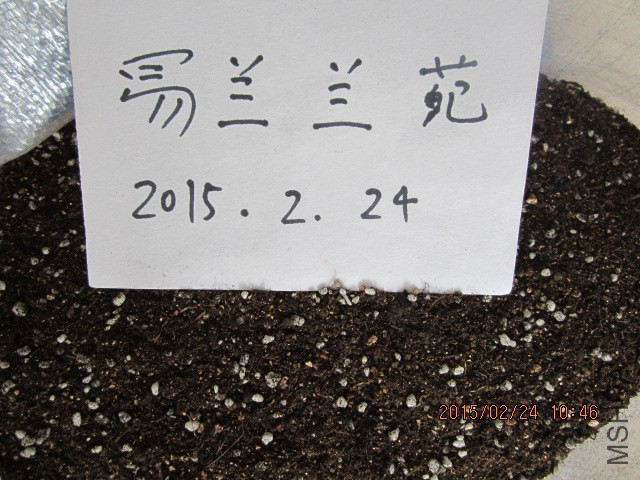 易兰兰苑
2015.2.24
2015/02/24 10:46